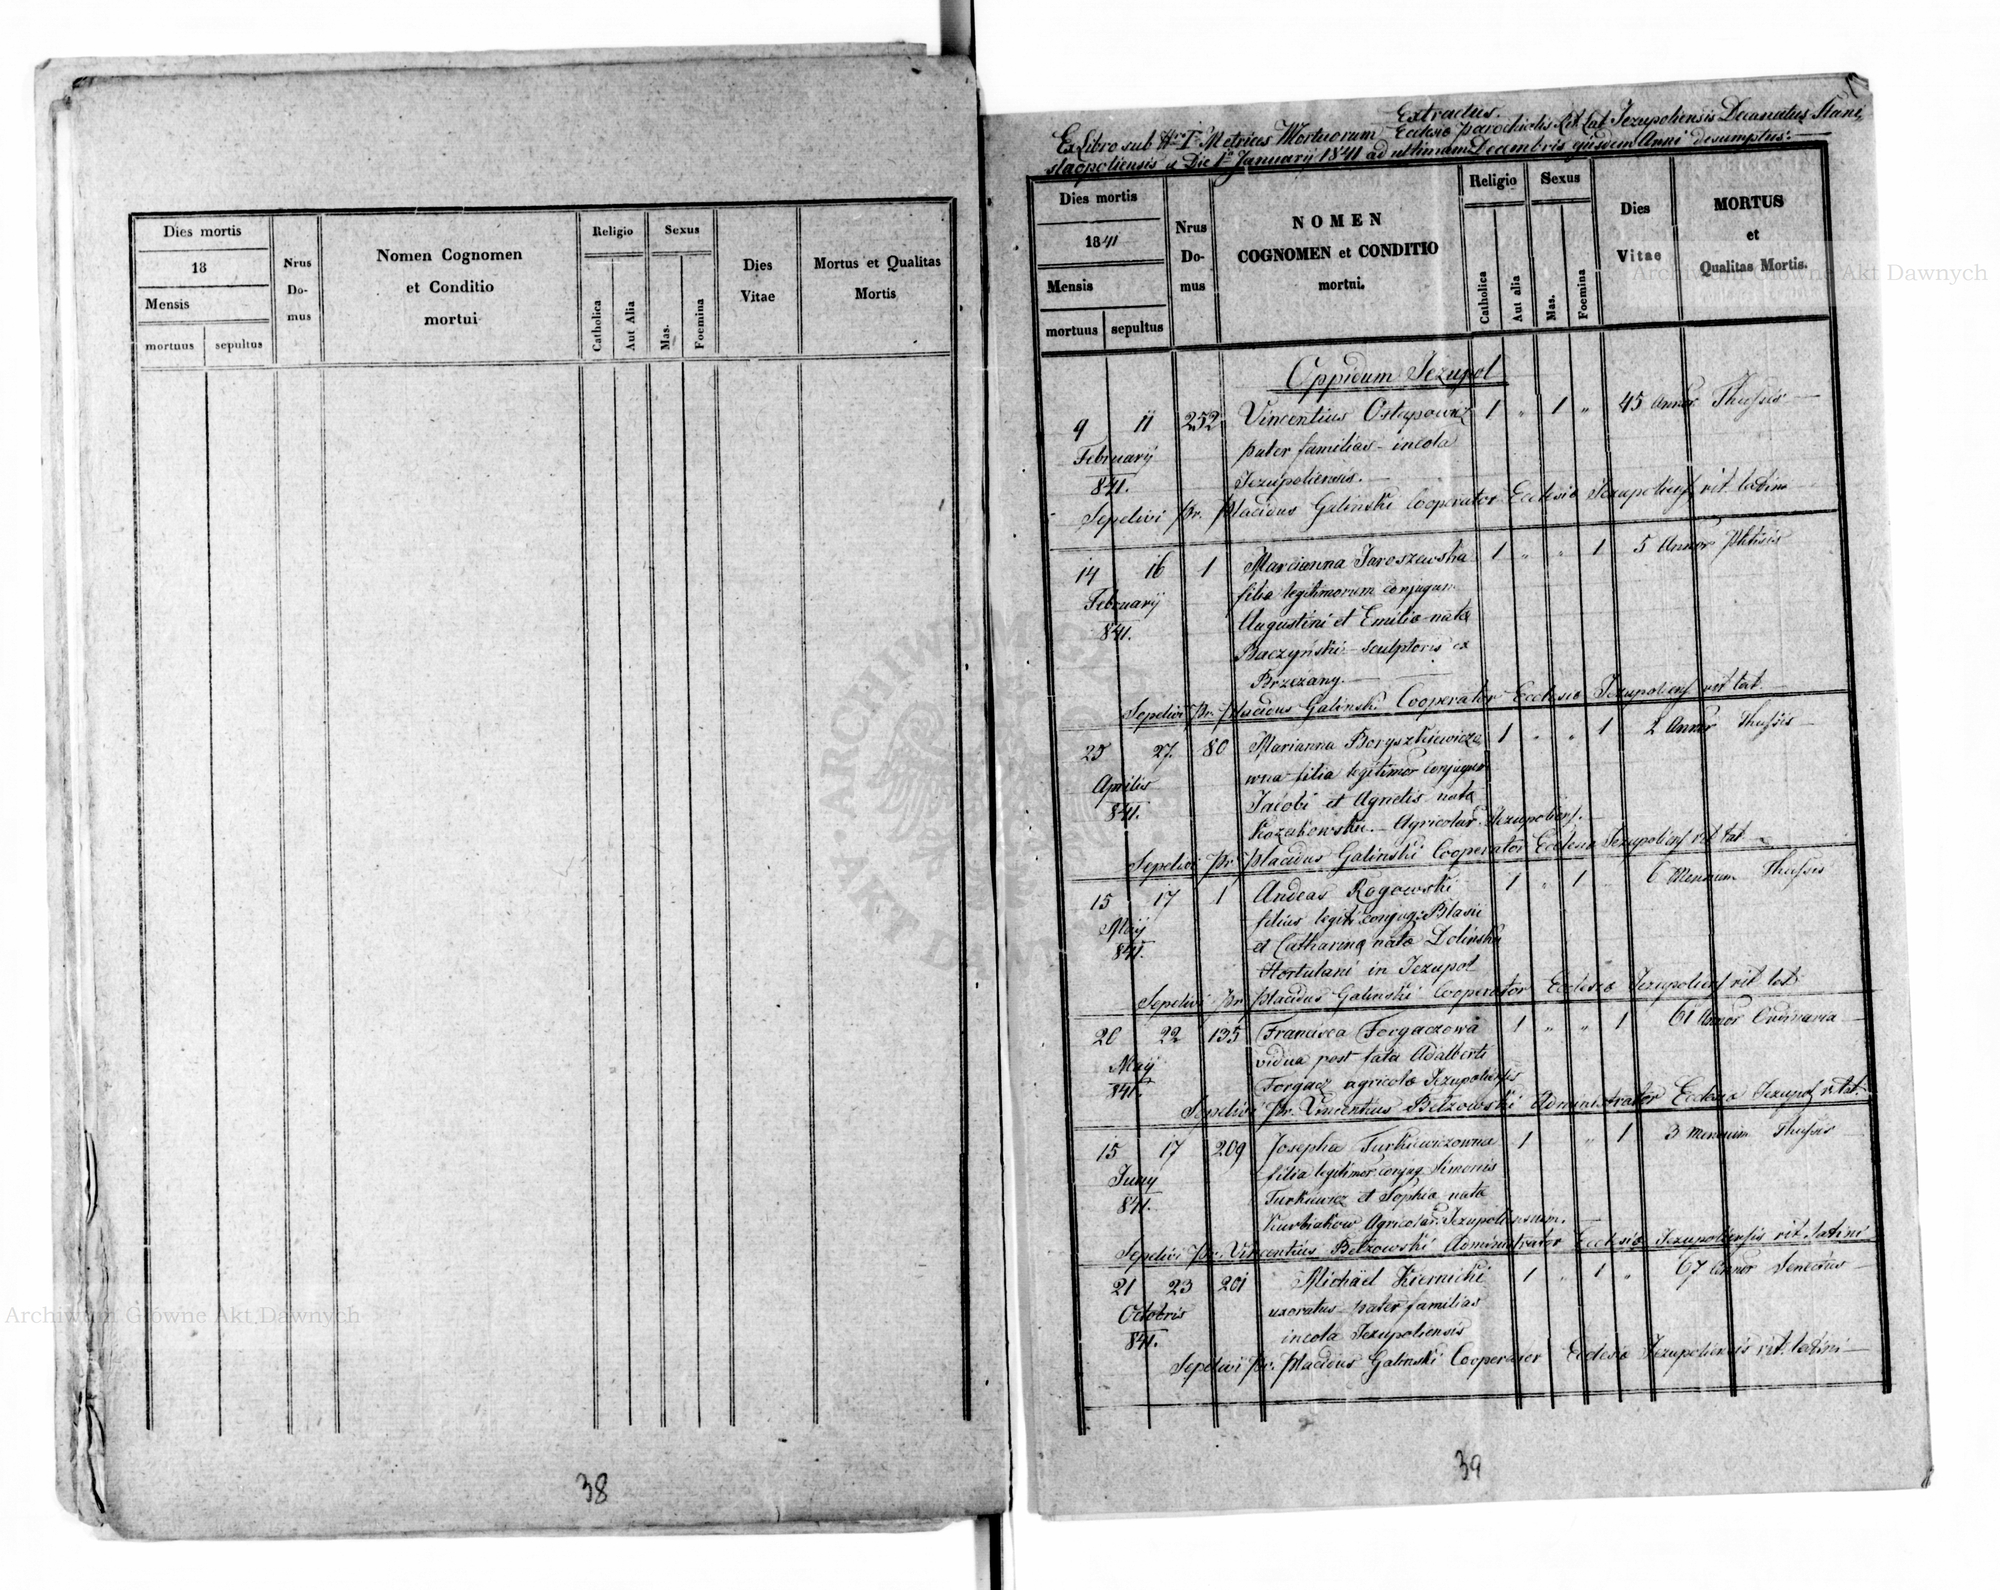 Dies mortis
18
Mensis
mortuus sepultus
Nrus
Do-
mus
Nomen Cognomen
et Conditio
mortui
Religio
Catholica
Aut Alia
Sexus
Mas.
Foemina
Dies
Vitae
Mortus et Qualitas
Mortis
38
Extractus.
Ex Libro sub Nro I Metrices Mortuorum Ecclesiæ parochialis Rit Lat Jezupoliensis Decanatus Stani,
slaopoliensis a Die 1a January 1841 ad ultimam Decembris ejusdem Anni desumptus.
Dies mortis
1841
Mensis
mortuus sepultus
Nrus
Do-
mus
NOMEN
COGNOMEN et CONDITIO
mortui.
Religio
Catholica
Aut alia
Sexus
Mas.
Foemina
Dies
Vitae
MORTUS
et
Qualitas Mortis.
Oppidum Jezupol
9 11 252 Vincentius Ostapowicz 1 " 1 " 45 Annor Thussis
Februarij pater familias - incola
841. Jezupoliensis.
Sepelivi Pr. Placidus Galinski Cooperator Ecclesiæ Jezupoliens rit latini
14 16 1 Marcianna Jaroszewska 1 " " 1 5 Annor Phtisis
Februarij filia legitimorum conjugum
841. Augustini et Emiliæ nata
Baczyński - Sculptoris ex
Brzezany.
Sepelivi Pr. Placidus Galinski Cooperator Ecclesiæ Jezupoliens rit lat.
25 27. 80 Marianna Boryszkiewiczo 1 " " 1 2 Annor Thussis
Aprilis wna filia legitimor conjugum
841. Jacobi et Agnetis nata
Kozakowska. - Agricolar. Jezupoliens.
Sepelivi Pr Placidus Galinski Cooperator Ecclesiæ Jezupoliens rit lat
15 17 1 Andeas Rogowski 1 " 1 " 6 Mensium Thussis
Maij filius legiti conjug: Blasii
841. et Catharinæ nata Dolinska
Hortulani in Jezupol
Sepelivi Pr Placidus Galinski Cooperator Ecclesiæ Jezupoliens rit lat
20 22 135 Francisca Forgaczowa 1 " " 1 61 Annor Ordinaria
Maij vidua post fata Adalberti
841. Forgacz agricolæ Jezupoliensis
Sepelivi Pr. Vincentius Betzowski Administrator Ecclesiæ Jezupol r. lat.
15 17 209 Josepha Turkiewiczowna 1 " 1 3 Mensium Thussis
Juny filia legitimor conjug Simonis
841. Turkiewicz et Sophiæ nata
Agricolar. Jezupoliensium.
Sepelivi Pr. Vincentius Betzowski Administrator Ecclesiæ Jezupoliensis rit. latini
21 23 201 Michäel Kiernicki 1 " 1 " 67 Annor Senectus
Octobris uxoratus - pater familias
841. incola Jezupoliensis
Sepelivi Pr. Placidus Galinski Cooperator Ecclesiæ Jezupoliensis rit. latini
39
Archiwum Główne Akt Dawnych
Archiwum Główne Akt Dawnych